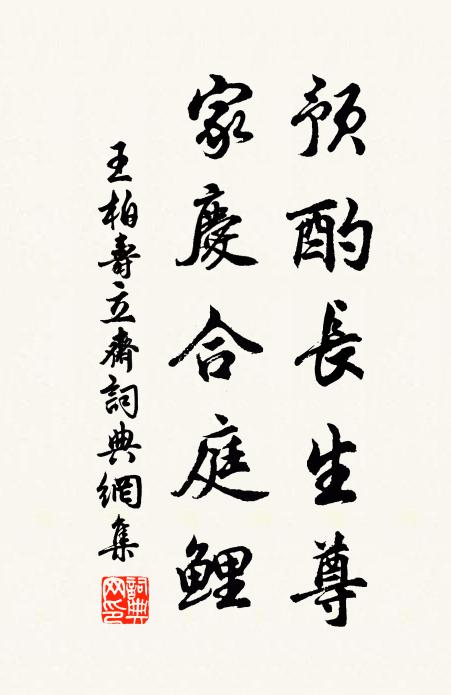 預酌長生尊
家慶合庭鯉
王柏壽立齋詞典網集
詞典网印